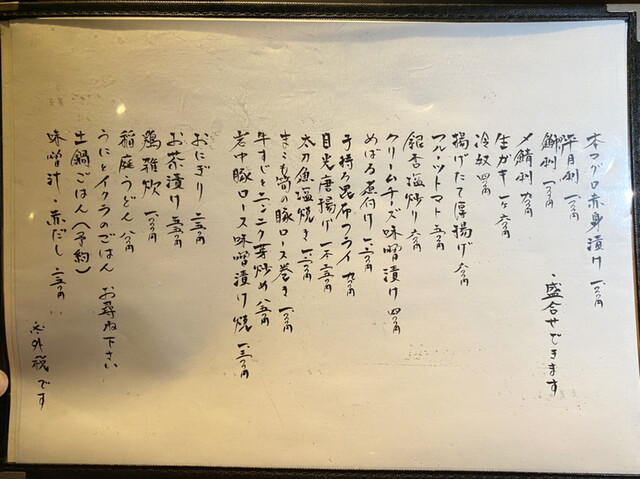 本マグロ赤身漬け 一、二〇〇円
平目刺 一、一〇〇円
・盛合せできます
鰤刺 一、一〇〇円
〆鯖刺 九〇〇円
生ガキ 一ケ 六〇〇円
冷奴 四〇〇円
揚げたて厚揚げ 六〇〇円
フルーツトマト 五〇〇円
銀杏塩炒り 六〇〇円
クリームチーズ味噌漬け 四〇〇円
めばる煮付け
子持ち昆布フライ 九〇〇円
目光唐揚げ 一本 二五〇円
太刀魚塩焼き
まこも筍の豚ロース巻き
牛すじとニンニク芽炒め 八五〇円
岩中豚ロース味噌漬け焼 一、三〇〇円
おにぎり 二五〇円
お茶漬け 五五〇円
鶏雑炊
稲庭うどん 八〇〇円
うにとイクラのごはん お尋ね下さい
土鍋ごはん(予約)
味噌汁・赤だし 二五〇円
※外税です